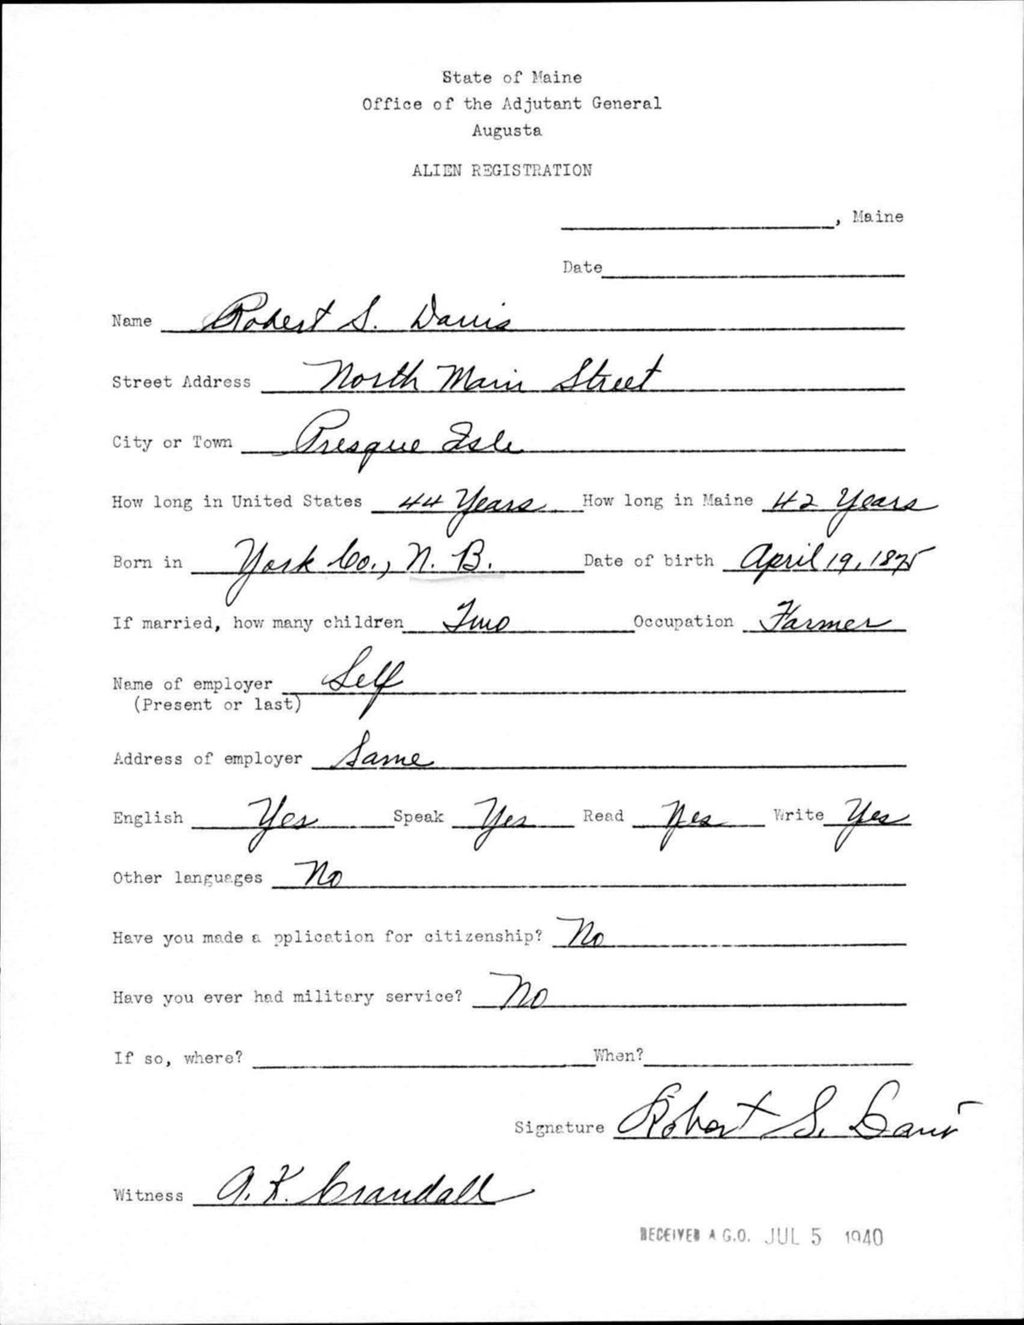 State of Maine
Office of the Adjutant General
Augusta
ALIEN REGISTRATION
, Maine
Date
Name Robert S. Davis
Street Address North Main Street
City or Town Presque Isle
How long in United States 44 Years How long in Maine 42 Years
Born in York Co., N. B. Date of birth April 19, 1875
If married, how many children Two Occupation Farmer
Name of employer Self
(Present or last)
Address of employer Same
English Yes Speak Yes Read Yes Write Yes
Other languages No
Have you made a pplication for citizenship? No
Have you ever had military service? No
If so, where? When?
Signature Robert S. Davis
Witness A. K. Crandall
RECEIVED A.G.O. JUL 5 1940